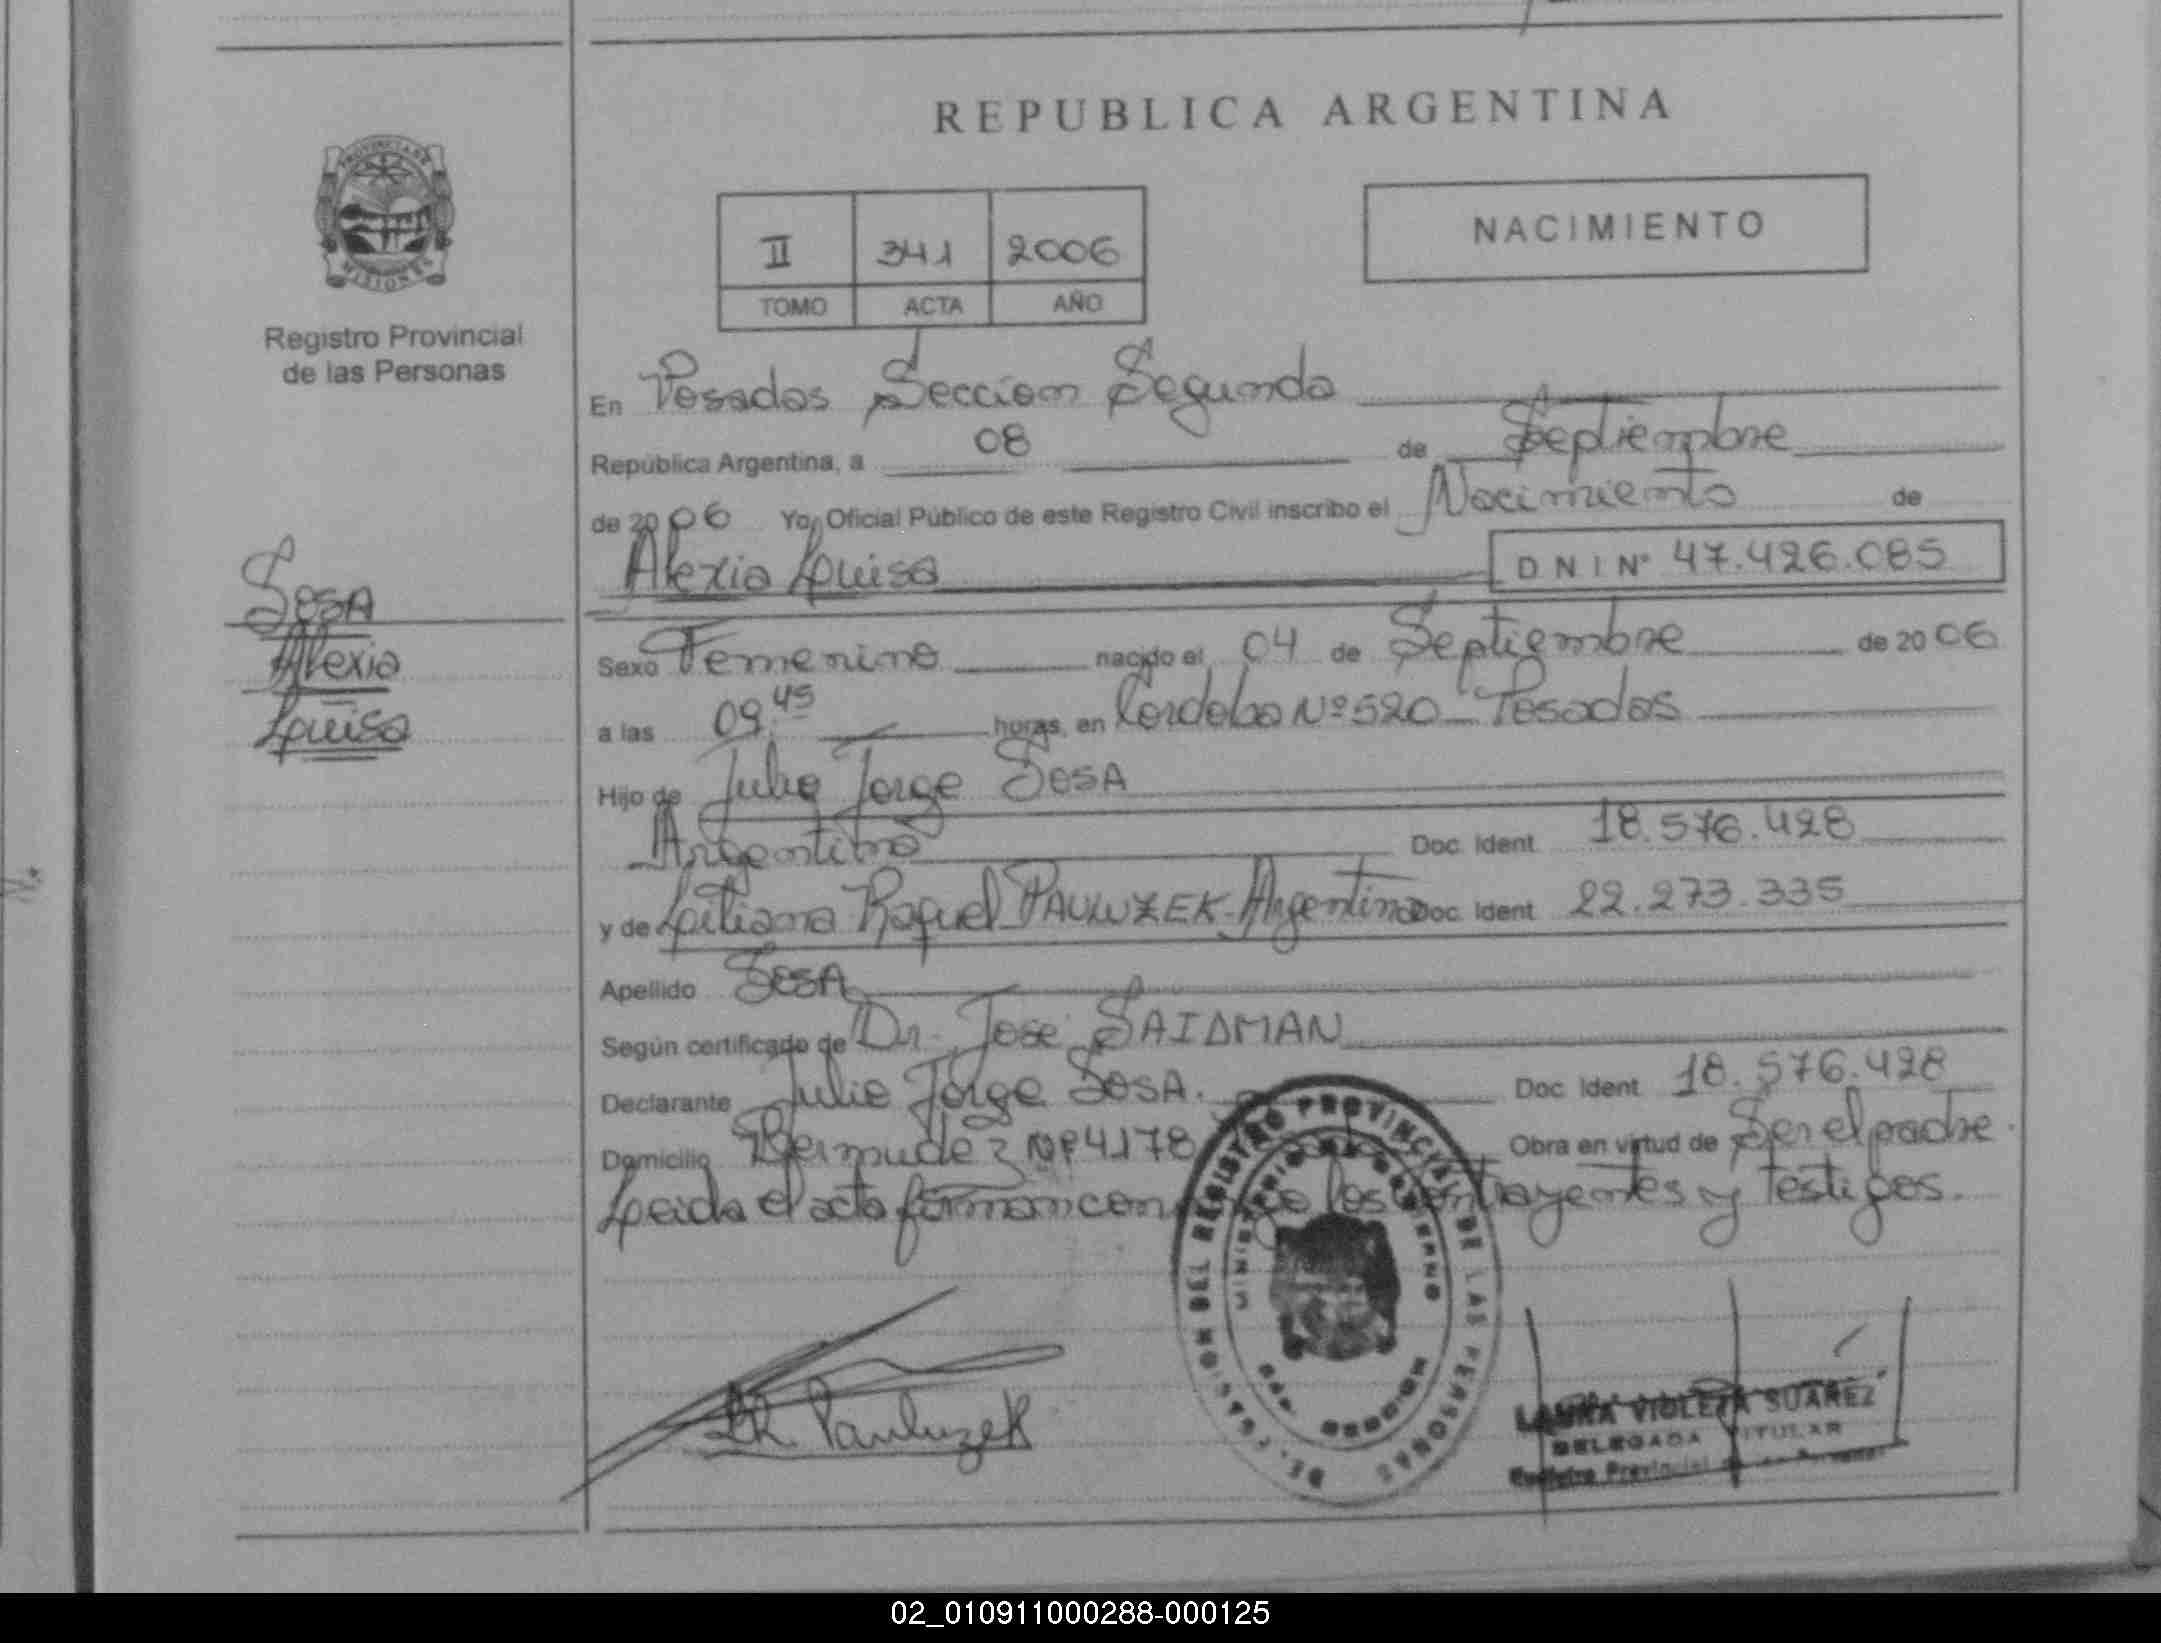 REPUBLICA ARGENTINA
PROVINCIA DE MISIONES
Registro Provincial
de las Personas
NACIMIENTO
II 341 2006
TOMO ACTA AÑO
En Posadas Sección Segunda
República Argentina, a 08 de Septiembre
de 2006 Yo, Oficial Público de este Registro Civil inscribo el Nacimiento de
Alexia Luisa DNI Nº 47.426.085
Sosa
Alexia
Luisa
Sexo Femenino nacido el 04 de Septiembre de 2006
a las 09.45 horas, en Cordoba Nº 520 Posadas
Hijo de Julio Jorge SOSA
Argentino Doc. Ident 18.576.428
y de Liliana Raquel PAULUZEK - Argentina Doc. Ident 22.273.335
Apellido SOSA
Según certificado de Dr. José SAIDMAN
Declarante Julio Jorge SOSA. Doc. Ident 18.576.428
Domicilio Bermudez Nº 4178 Obra en virtud de Ser el padre.
Leida el acta firman con los contrayentes y testigos.
LR Pauluzek
DEL REGISTRO PROVINCIAL DE LAS PERSONAS
MINISTERIO DE GOBIERNO
LAURA VIOLETA SUAREZ
DELEGADA TITULAR
Registro Provincial
02_010911000288-000125